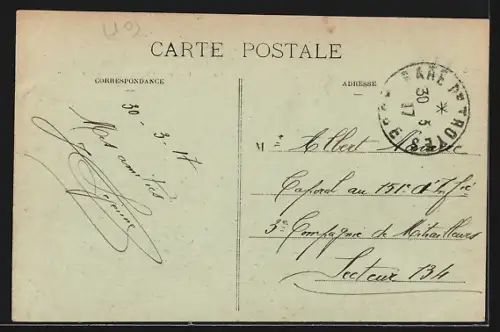 CARTE POSTALE
CORRESPONDANCE
ADRESSE
GARE DE TROYES
30 - 3 - 17
Mes amitiés
30 3
17
M Albert
Caporal au 151e d'Inf ie
3e Compagnie de Mitrailleurs
Secteur 134